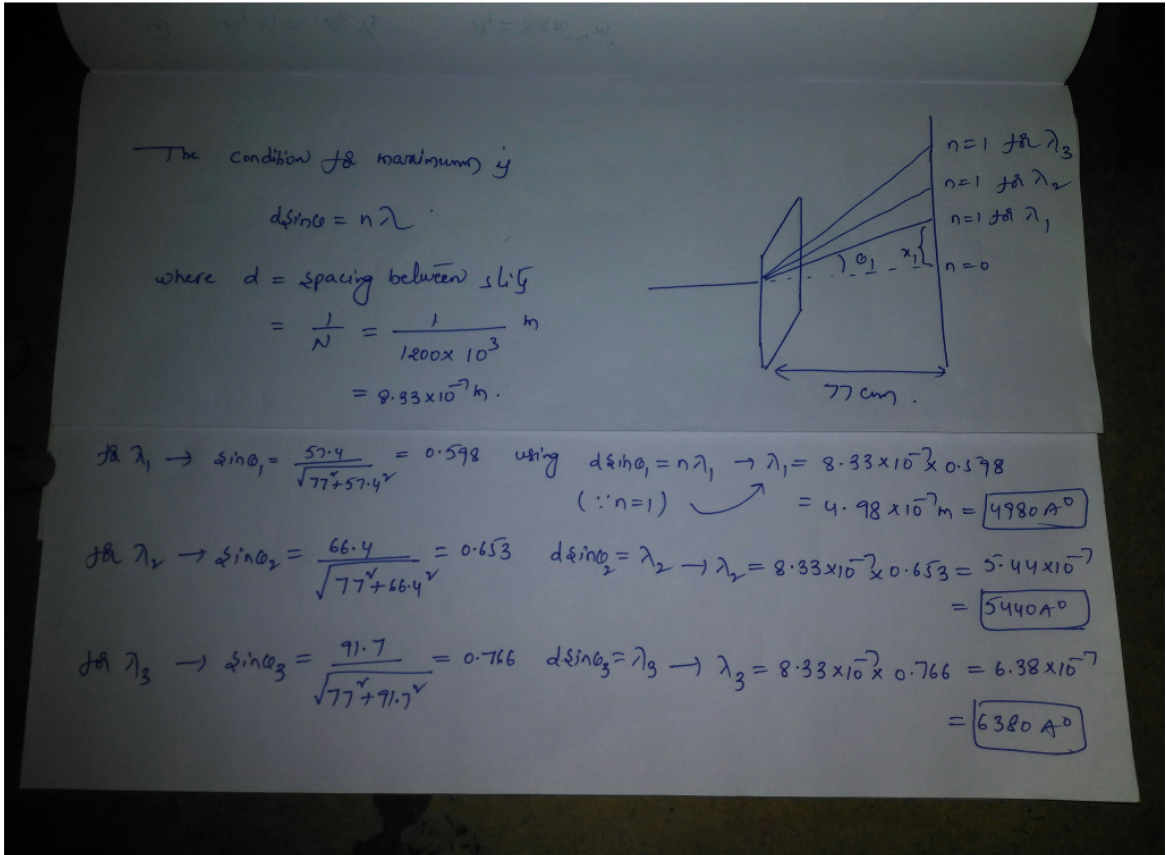 The condition for maximum is
dsinθ = nλ
where d = spacing between slits
= 1/N = 1/(1200×10³) m
= 8.33×10⁻⁷ m.
n=1 for λ₃
n=1 for λ₂
n=1 for λ₁
θ₁ x₁ n=0
77 cm.
for λ₁ → sinθ₁ = 57.4/√(77²+57.4²) = 0.598 using dsinθ₁ = nλ₁ → λ₁ = 8.33×10⁻⁷×0.598
(∵n=1) = 4.98×10⁻⁷m = 4980A⁰
for λ₂ → sinθ₂ = 66.4/√(77²+66.4²) = 0.653 dsinθ₂ = λ₂ → λ₂ = 8.33×10⁻⁷×0.653 = 5.44×10⁻⁷
= 5440A⁰
for λ₃ → sinθ₃ = 91.7/√(77²+91.7²) = 0.766 dsinθ₃ = λ₃ → λ₃ = 8.33×10⁻⁷× 0.766 = 6.38×10⁻⁷
= 6380 A⁰